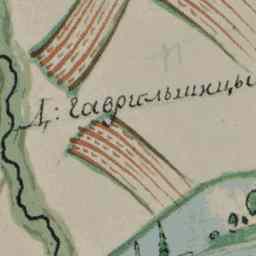 Д: Гаврильшицы